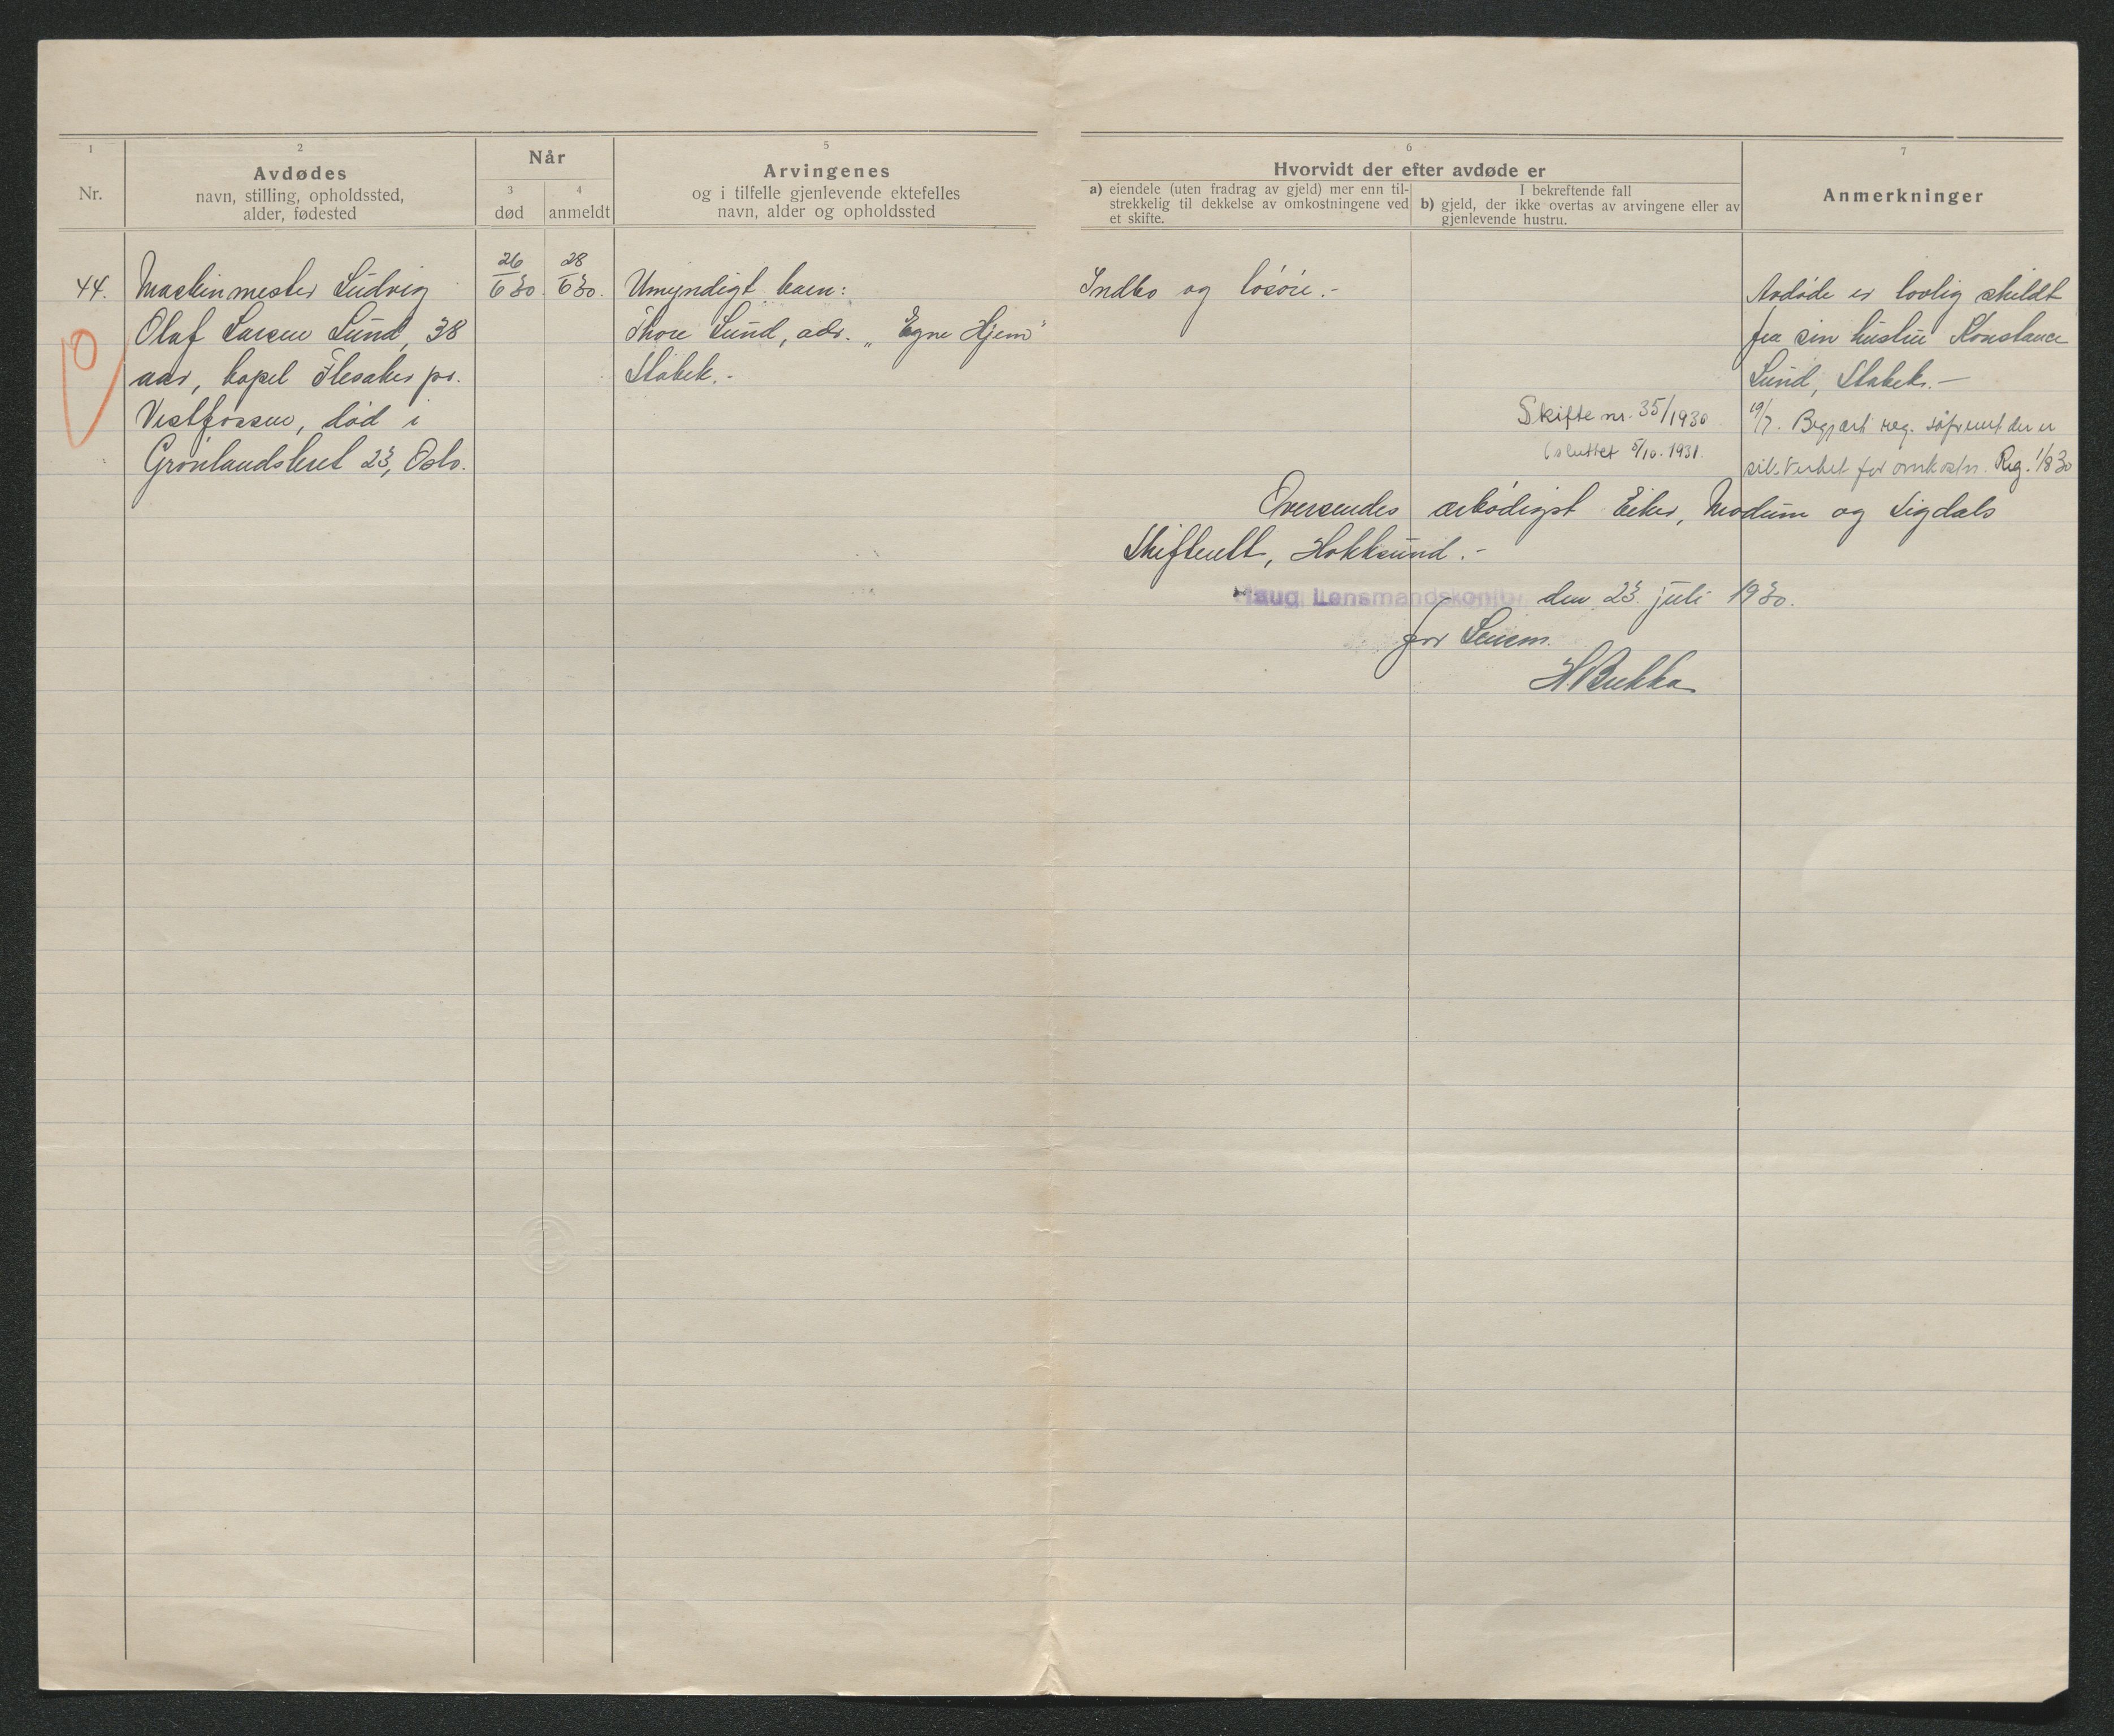 1
Nr.
2
Avdødes
navn, stilling, opholdssted,
alder, fødested
Når
3
død
4
anmeldt
5
Arvingenes
og i tilfelle gjenlevende ektefelles
navn, alder og opholdssted
6
Hvorvidt der efter avdøde er
a) eiendele (uten fradrag av gjeld) mer enn til-
strekkelig til dekkelse av omkostningene ved
et skifte.
I bekreftende fall
b) gjeld, der ikke overtas av arvingene eller av
gjenlevende hustru.
7
Anmerkninger
44.
Maskinmester Ludvig
Olaf Larsen Lund, 38
aar, bopel Flesaker pr.
Vestfossen, død i
Grønlandsleret 23, Oslo.
26/6 30.
28/6 30.
Umyndigt barn:
Thore Lund, adr. „Egne Hjem"
Stabek.-
Indbo og løsøre.-
Avdøde er lovlig skildt
fra sin hustru Konstance
Lund, Stabek.-
19/7. Begjært reg. såfremt der er
for omkostn. Reg. 1/8 30
Skifte nr. 35/1930
(sluttet 5/10. 1931.
Oversendes ærbødigst Eiker, Modum og Sigdals
Skifterett, Hokksund.-
Haug Lensmandskontor den 23. juli 1930.
for Lensm.
H. Bukka